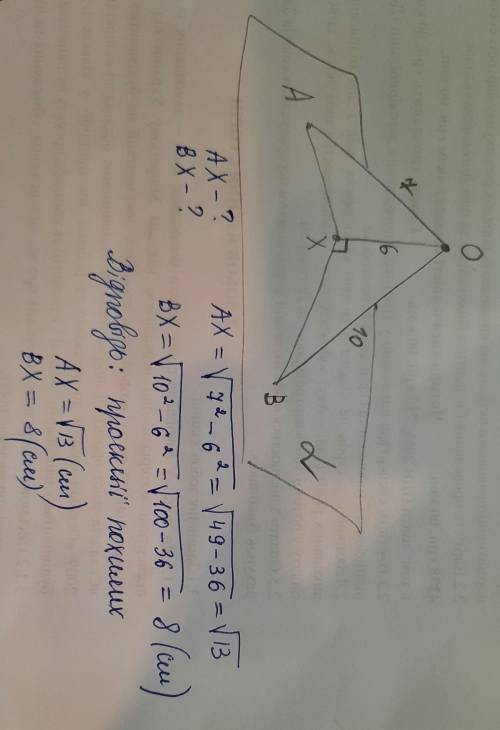 O
7
6
10
A
X
B
α
AX - ?
BX - ?
AX = √7² - 6² = √49 - 36 = √13
BX = √10² - 6² = √100 - 36 = 8 (см)
Відповідь: проєкції похилих
AX = √13 (см)
BX = 8 (см)